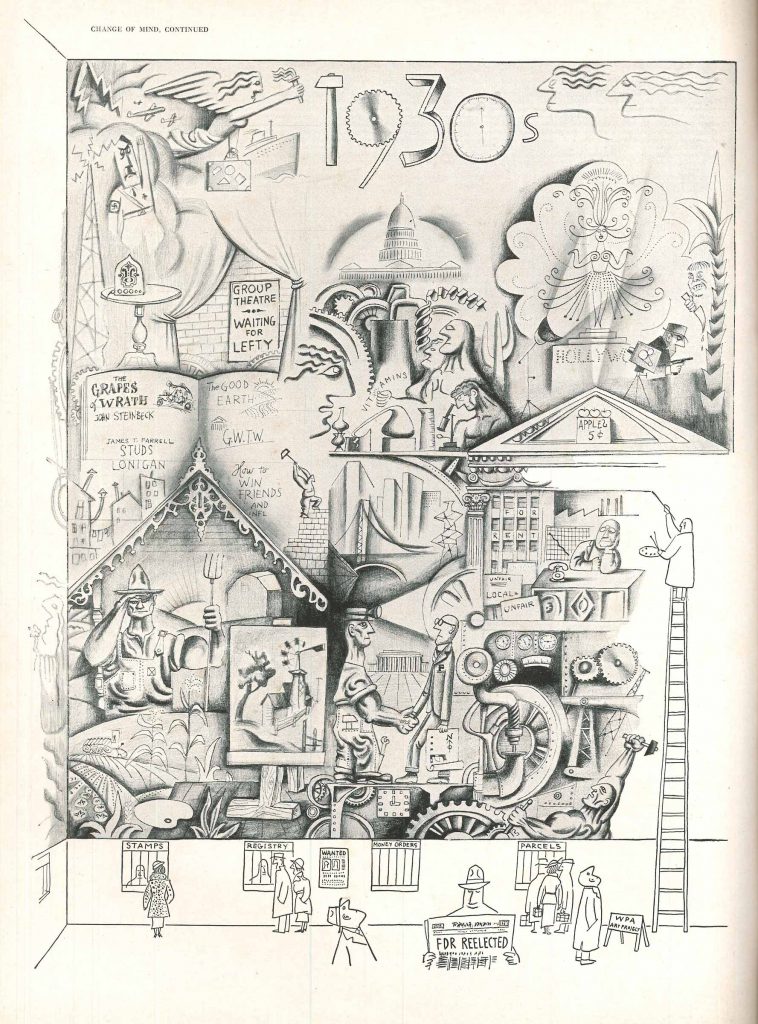 CHANGE OF MIND, CONTINUED
1930s
GROUP
THEATRE
WAITING
FOR
LEFTY
VITAMINS
HOLLYWO
THE
GRAPES
of WRATH
JOHN STEINBECK
JAMES T. FARRELL
STUDS
LONIGAN
The GOOD
EARTH
G.W.T.W.
How to
WIN
FRIENDS
AND
INFL
APPLES
5¢
FOR
RENT
UNFAIR
LOCAL
UNFAIR
STAMPS
REGISTRY
WANTED
MONEY ORDERS
PARCELS
FDR REELECTED
WPA
ART PROJECT